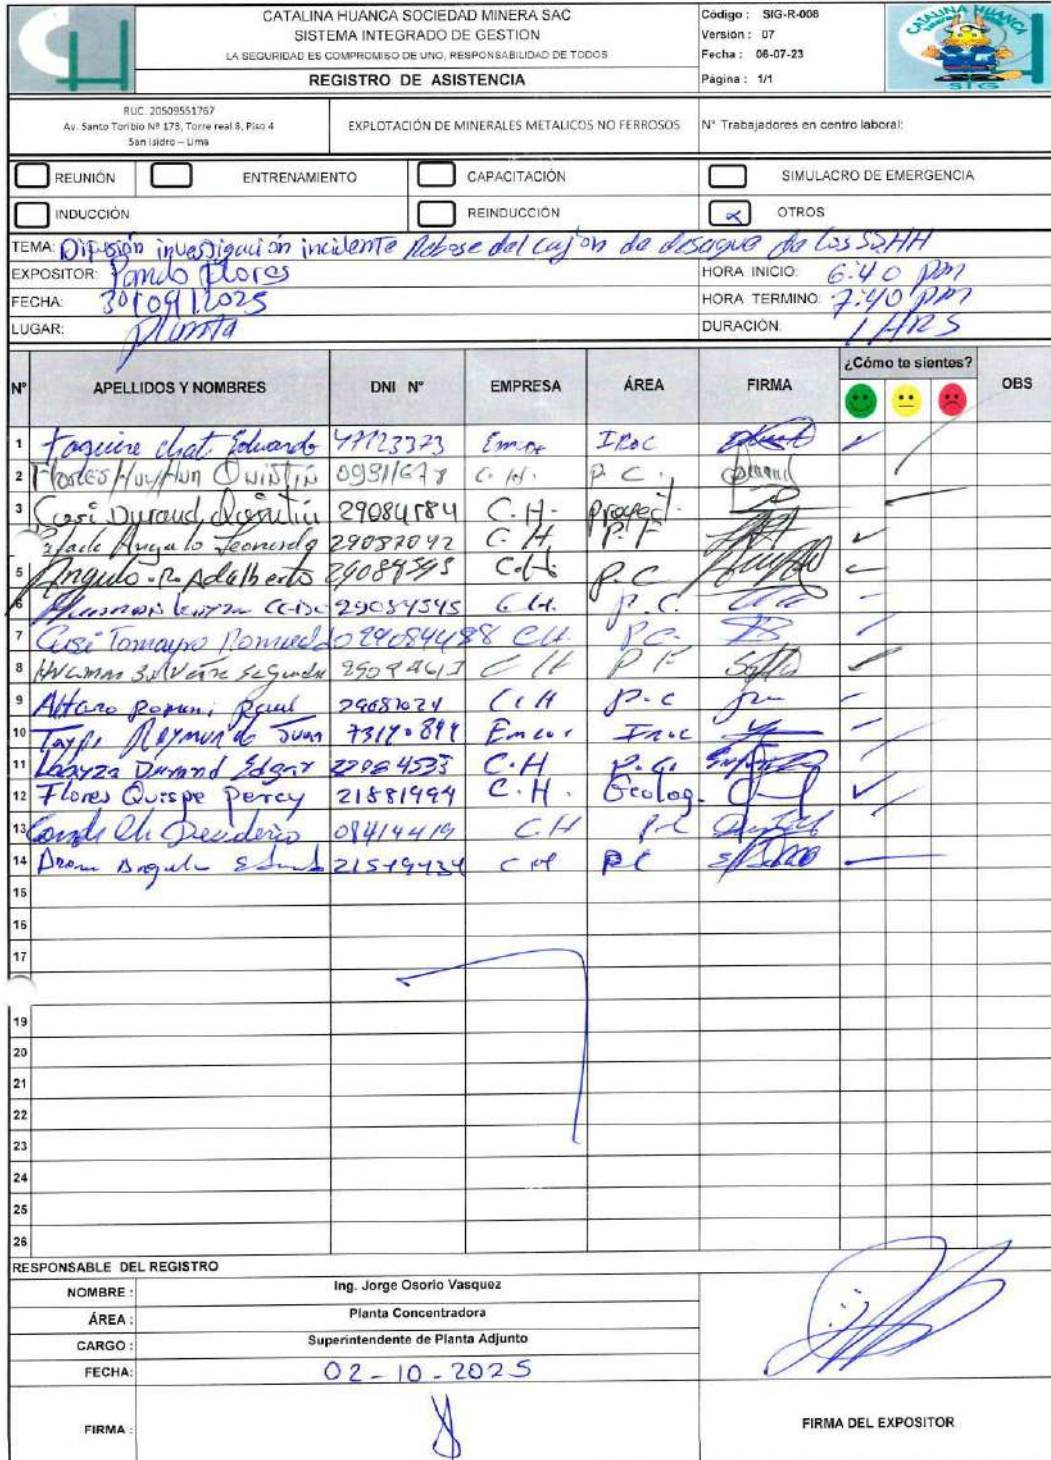 CATALINA HUANCA SOCIEDAD MINERA SAC
SISTEMA INTEGRADO DE GESTION
LA SEGURIDAD ES COMPROMISO DE UNO, RESPONSABILIDAD DE TODOS
REGISTRO DE ASISTENCIA
Código : SIG-R-008
Versión : 07
Fecha : 06-07-23
Página : 1/1
CATALINA HUANCA
SIG
RUC. 20509551767
Av. Santo Toribio Nº 173, Torre real 8, Piso 4
San Isidro – Lima
EXPLOTACIÓN DE MINERALES METALICOS NO FERROSOS
N° Trabajadores en centro laboral:
REUNIÓN ENTRENAMIENTO CAPACITACIÓN SIMULACRO DE EMERGENCIA
INDUCCIÓN REINDUCCIÓN OTROS
TEMA: Difusión investigación incidente Rebose del cajón de desague de los SSHH
EXPOSITOR: Pando Flores
HORA INICIO: 6:40 pm
FECHA: 30/09/2025
HORA TERMINO: 7:40 pm
LUGAR: planta
DURACIÓN: 1 HRS
N° APELLIDOS Y NOMBRES DNI N° EMPRESA ÁREA FIRMA ¿Cómo te sientes? OBS
1 Eduardo 47123373
2 Flores Quintin C.H. P.C.
3 Cusi Durand Quintin 29084184 C.H.
4 Angulo Leonardo 29087042 C.H
5 Angulo R. Adalberto C.H. P.C
6 29084545 C.H. P.C.
7 Cusi Tomayro 29084488 C.H. P.C.
8 C H
9 Alfaro Raul 29087024 C.H P.C
10 Taype Raymundo Juan
11 Loayza Durand Edgar C.H P.C.
12 Flores Quispe Percy 21881994 C.H. Geolog.
13 Desiderio 08414419 C.H P.C
14 C H P C
15
16
17
19
20
21
22
23
24
25
26
RESPONSABLE DEL REGISTRO
NOMBRE : Ing. Jorge Osorio Vasquez
ÁREA : Planta Concentradora
CARGO : Superintendente de Planta Adjunto
FECHA: 02-10-2025
FIRMA :
FIRMA DEL EXPOSITOR